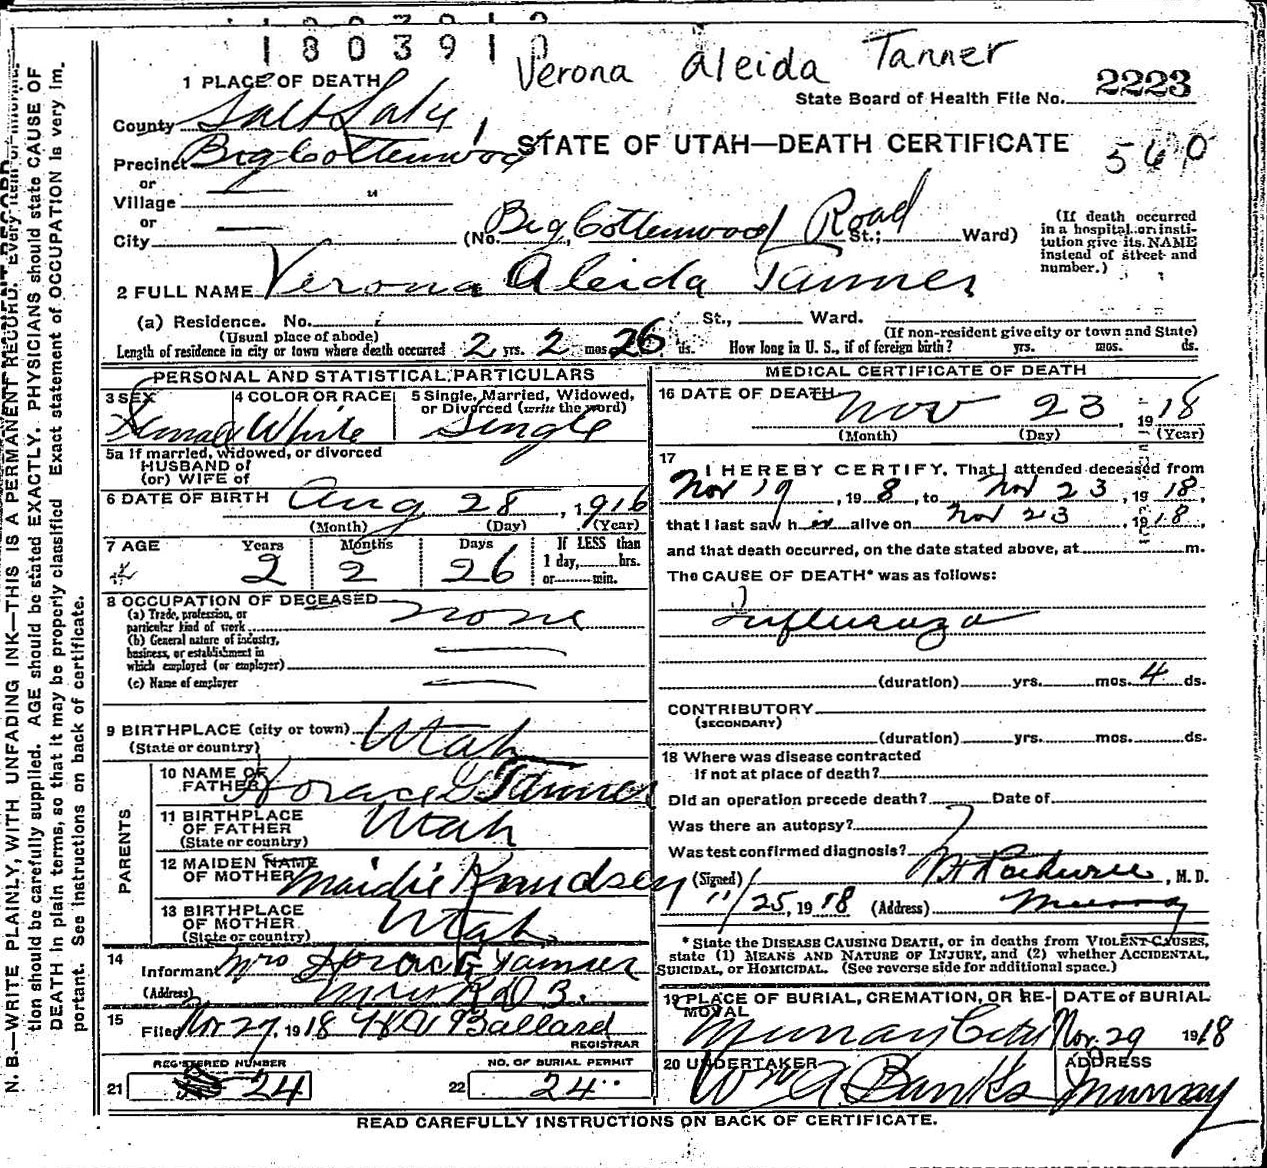 1803910
Verona Aleida Tanner
1 PLACE OF DEATH
2223
State Board of Health File No.
County Salt Lake
STATE OF UTAH—DEATH CERTIFICATE
560
Precinct Big Cottonwood
or
Village
or
City
(No. Big Cottonwood Road St.; Ward)
(If death occurred
in a hospital or insti-
tution give its NAME
instead of street and
number.)
2 FULL NAME Verona Aleida Tanner
(a) Residence. No. St., Ward.
(Usual place of abode)
(If non-resident give city or town and State)
Length of residence in city or town where death occurred 2 yrs. 2 mos. 26 ds. How long in U. S., if of foreign birth? yrs. mos. ds.
PERSONAL AND STATISTICAL PARTICULARS
3 SEX
4 COLOR OR RACE
5 Single, Married, Widowed,
or Divorced (write the word)
Female White Single
5a If married, widowed, or divorced
HUSBAND of
(or) WIFE of
6 DATE OF BIRTH Aug 28, 1916
(Month) (Day) (Year)
7 AGE Years Months Days
If LESS than
1 day, hrs.
or min.
2 2 26
8 OCCUPATION OF DECEASED
(a) Trade, profession, or
particular kind of work none
(b) General nature of industry,
business, or establishment in
which employed (or employer)
(c) Name of employer
9 BIRTHPLACE (city or town)
(State or country) Utah
PARENTS
10 NAME OF
FATHER Horace G Tanner
11 BIRTHPLACE
OF FATHER Utah
(State or country)
12 MAIDEN NAME
OF MOTHER Maidie Knudsen
13 BIRTHPLACE
OF MOTHER Utah
(State or country)
14
Informant Mrs Horace G Tanner
(Address) Murray R D 3.
15
Filed Nov 27, 1918 Ballard
REGISTRAR
REGISTERED NUMBER
21 24
NO. OF BURIAL PERMIT
22 24
MEDICAL CERTIFICATE OF DEATH
16 DATE OF DEATH Nov 23 1918
(Month) (Day) (Year)
17
I HEREBY CERTIFY, That I attended deceased from
Nov 19, 198, to Nov 23, 1918,
that I last saw her alive on Nov 23, 1918,
and that death occurred, on the date stated above, at m.
The CAUSE OF DEATH* was as follows:
Influenza
(duration) yrs. mos. 4 ds.
CONTRIBUTORY
(SECONDARY)
(duration) yrs. mos. ds.
18 Where was disease contracted
If not at place of death?
Did an operation precede death? Date of
Was there an autopsy?
Was test confirmed diagnosis?
(Signed) , M. D.
11/25, 1918 (Address) Murray
* State the DISEASE CAUSING DEATH, or in deaths from VIOLENT CAUSES,
state (1) MEANS AND NATURE OF INJURY, and (2) whether ACCIDENTAL,
SUICIDAL, or HOMICIDAL. (See reverse side for additional space.)
19 PLACE OF BURIAL, CREMATION, OR RE-
MOVAL
DATE of BURIAL
Murray City Nov. 29 1918
20 UNDERTAKER
ADDRESS
Wm A Banks Murray
READ CAREFULLY INSTRUCTIONS ON BACK OF CERTIFICATE.
N. B.—WRITE PLAINLY, WITH UNFADING INK—THIS IS A PERMANENT RECORD. Every item of informa-
tion should be carefully supplied. AGE should be stated EXACTLY. PHYSICIANS should state CAUSE OF
DEATH in plain terms, so that it may be properly classified. Exact statement of OCCUPATION is very im-
portant. See instructions on back of certificate.